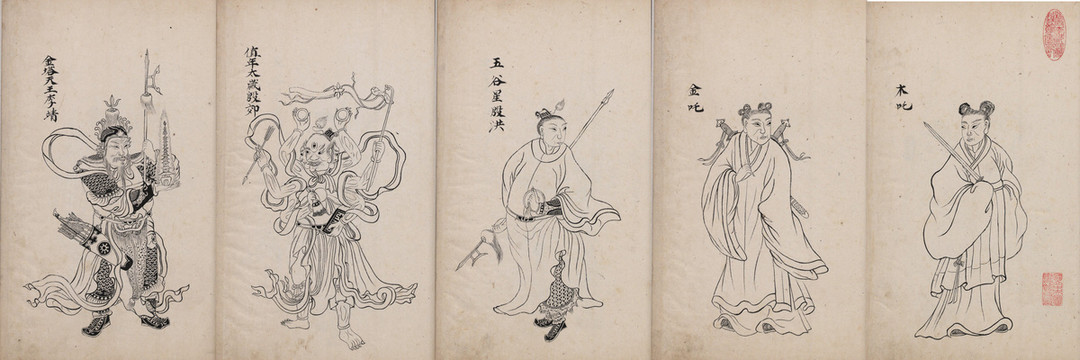 金塔天王李靖
值年太歲殷郊
五谷星殷洪
金吒
木吒